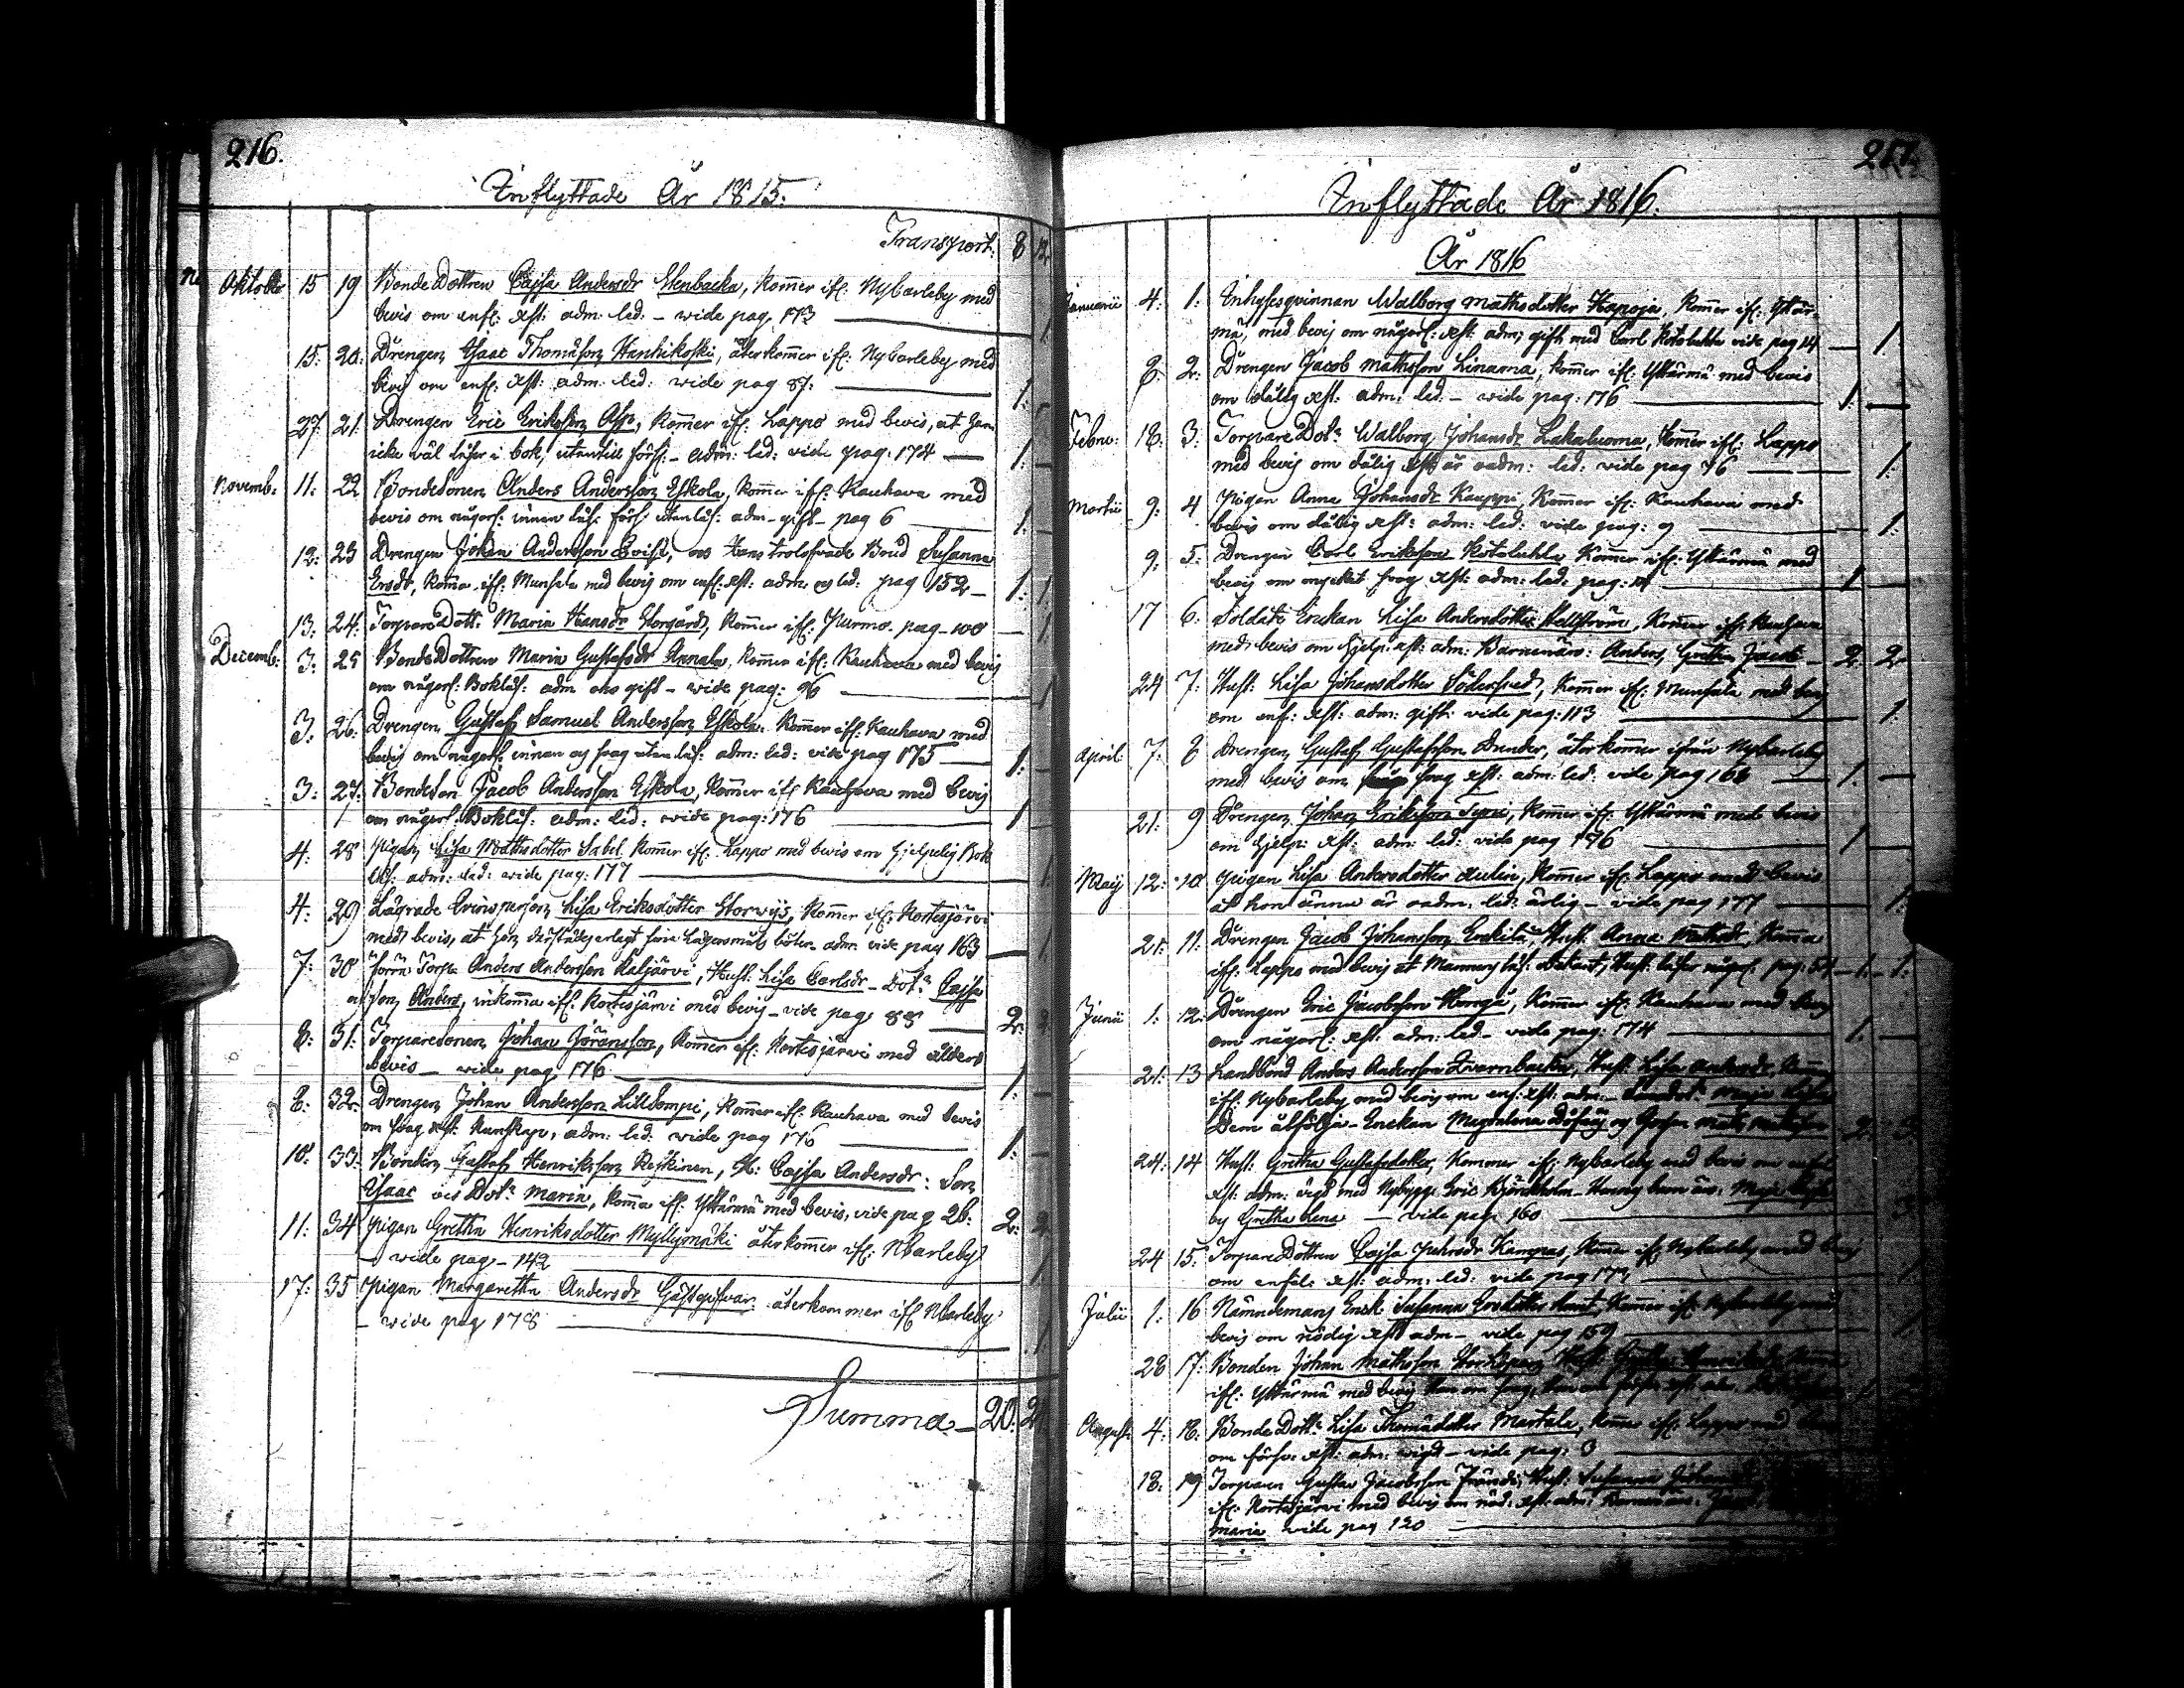 216.
Inflyttade År 1815.
Transport: 8 12
Oktober 15 19 BondeDottren Cajsa Andersdr Stenbacka, komer ifl: Nybarleby med
bevis om enf: xst: adm: led: – wide pag 173 1
15: 20: Drengen Isaac Thomasson Hanhikoski, återkomer ifl: Nybarleby med
bevis om enf: xst: adm: led: wide pag 87: 1:
27: 21: Drengen Eric Eriksson, komer ifl: Lappo med bevis, at han
icke väl läser i bok, utantill förs: – adm: led: vide pag: 174 1:
Novemb: 11: 22 Bondesonen Anders Andersson Eskola, komer ifl: Kauhava med
bevis om någorl: innan läs: förs: utanläs: adm – gift – pag 6 1:
12: 23 Drengen Johan Andersson, Susanna
Ersdr, koma ifl: Munsala med bevis om enf: xst: adm: og led: pag 152 – 1: 1
13: 24: TorpareDott: Maria Hansdr Storgård, komer ifl: Purmo – pag – 100 – 1
Decemb: 3: 25 BondeDottren Maria Gustafsdr Annala, komer ifl: Kauhava med bevis
om någorl: Bokläs: adm: gift – wide pag: 96 1
3: 26: Drengen Gustaf Samuel Andersson Eskola, komer ifl: Kauhava med
bevis om någorl: innan og svag utanläs: adm: led: vide pag 175 1:
3: 27: Bondeson Jacob Andersson Eskola, komer ifl Kauhava med bevis
om någorl: Bokläs: adm: led: wide pag: 176 1
4: 28 Pigan Lisa Mattsdotter Sabel komer ifl: Lappo med bevis om hjelpelig Bok
läs: adm: led: wide pag: 177 1
4: 29 Lägrade Lisa Eriksdotter Storwijs, komer ifl: Kortesjärvi
med bevis, at hon derstädes erlagt sine Lägersmåls böter adm: vide pag 163 1
7: 30 Torp: Anders Andersson Kaljärvi, Hust: Lisa Carlsdr – Dotr Cajsa
Son Anders, inkomma ifl: Kortesjärvi med bevis – vide pag: 88 2: 2
8: 31: Torparesonen Johan Göransson, komer ifl: Kortesjärvi med ålders
bevis – wide pag 176 1
8: 32: Drengen Johan Andersson Lillkompi, komer ifl: Kauhava med bevis
om svag xst: kunskap, adm: led: wide pag 176 1:
10: 33: Bonden Gustaf Henriksson Reskinen, H: Cajsa Andersdr: Son
Isaac og Dotr Maria, koma ifl: Ylihärmä med bevis, vide pag 26: 2: 2
11: 34 Pigan Gretha Henriksdotter Myllymäki återkomer ifl: Nbarleby
– wide pag – 142 1
17: 35 Pigan Margaretha Andersdr Gästgifvar: återkommer ifl Nbarleby
– wide pag 178 1
Summa – 20: 2
Inflyttade År 1816.
År 1816
Januarii 4: 1: Inhysesqvinnan Walborg Mathsdotter Kapoja, komer ifl: Ythär-
mä, med bevis om någorl: xst: adm; gift med Carl Kotoluhta vide pag 14 – 1
8: 2: Drengen Jacob Mathsson Linama, komer ifl: Ythärmä med bevis
om dålig xst: adm: led: – wide pag: 176 1: –
Febru: 18: 3: TorpareDotr Walborg Johansdr Lakaluoma, komer ifl: Lappo
med bevis om dålig xst: är oadm: led: vide pag 76 1:
Martii 9: 4 Pigan Anna Johansdr Kauppi, komer ifl: Kauhava med
bevis om dålig xst: adm: led: vide pag: 9 1:
9: 5: Drengen Carl Eriksson Kotoluhta komer ifl: Ythärmä med
bevis om mycket svag xst: adm: led: pag: 14 1 –
17 6: Soldats Enckan Lisa Andersdotter Hellström, komer ifl: Kauhava
med bevis om hjelp: xst: adm: Barnen äro: Anders, Gretha, Jacob – 2 2
24 7: Hust: Lisa Johansdotter Södersved, komer ifl: Munsala med bevis
om enf: xst: adm: gift: vide pag: 113 1:
April: 7: 8 Drengen Gustaf Gustafsson Drender, återkomer ifrån Nybarleby
med bevis om svag xst: adm: led: vide pag 168 1: –
21: 9 Drengen Johan Eriksson, komer ifl: Ythärmä med bevis
om hjelp: xst: adm: led: vide pag 176 1
Maij 12: 10 Pigan Lisa Andersdotter, komer ifl: Lappo med bevis
at hon ännu är oadm: led: ärlig – vide pag 177 1:
21: 11: Drengen Jacob Johansson, Hust: Anna Mattsdr, koma
ifl: Lappo med bevis at Mannens läs:, Hust: läser någorl: pag: 54 – 1: – 1:
Junii 1: 12: Drengen Eric Jacobsson Honga, komer ifl: Kauhava med bevis
om någorl: xst: adm: led – vide pag: 174 1: –
21: 13 Landbond Anders Andersson Qvarnbacka, Hust: Lisa Andersdr,
ifl: Nybarleby med bevis om enf: xst: adm – Maja
Dem åtfölja – Enckan Magdalena og 2:
24: 14 Hust: Gretha Gustafsdotter, komer ifl: Nybarleby med bevis om enfal
xst: adm: vigd med Nybygg: Eric Björckholm – Hennes barn äro: Maja
og Gretha Lena – vide pag: 160
24 15: TorpareDottren Cajsa Kampas, komer ifl: Nybarleby med bevis
om enfal: xst: adm: led: vide pag 173
Julii 1: 16 Nämndemans Enck: Susanna komer ifl: Nybarleby med
bevis om nödig xst: adm – vide pag 159
28 17: Bonden Johan Mathsson
ifl: Ythärmä med bevis
August: 4: 18: BondeDottr: Lisa Thomädotter Martala, komer ifl: Lappo med
om förs: xst: adm: vigd – vide pag: 3
18: 19 Torparen Gustav Jacobsson, Hust: Susanna
ifl: Kortesjärvi med bevis om nöd: xst: adm:
Maria vide pag 120